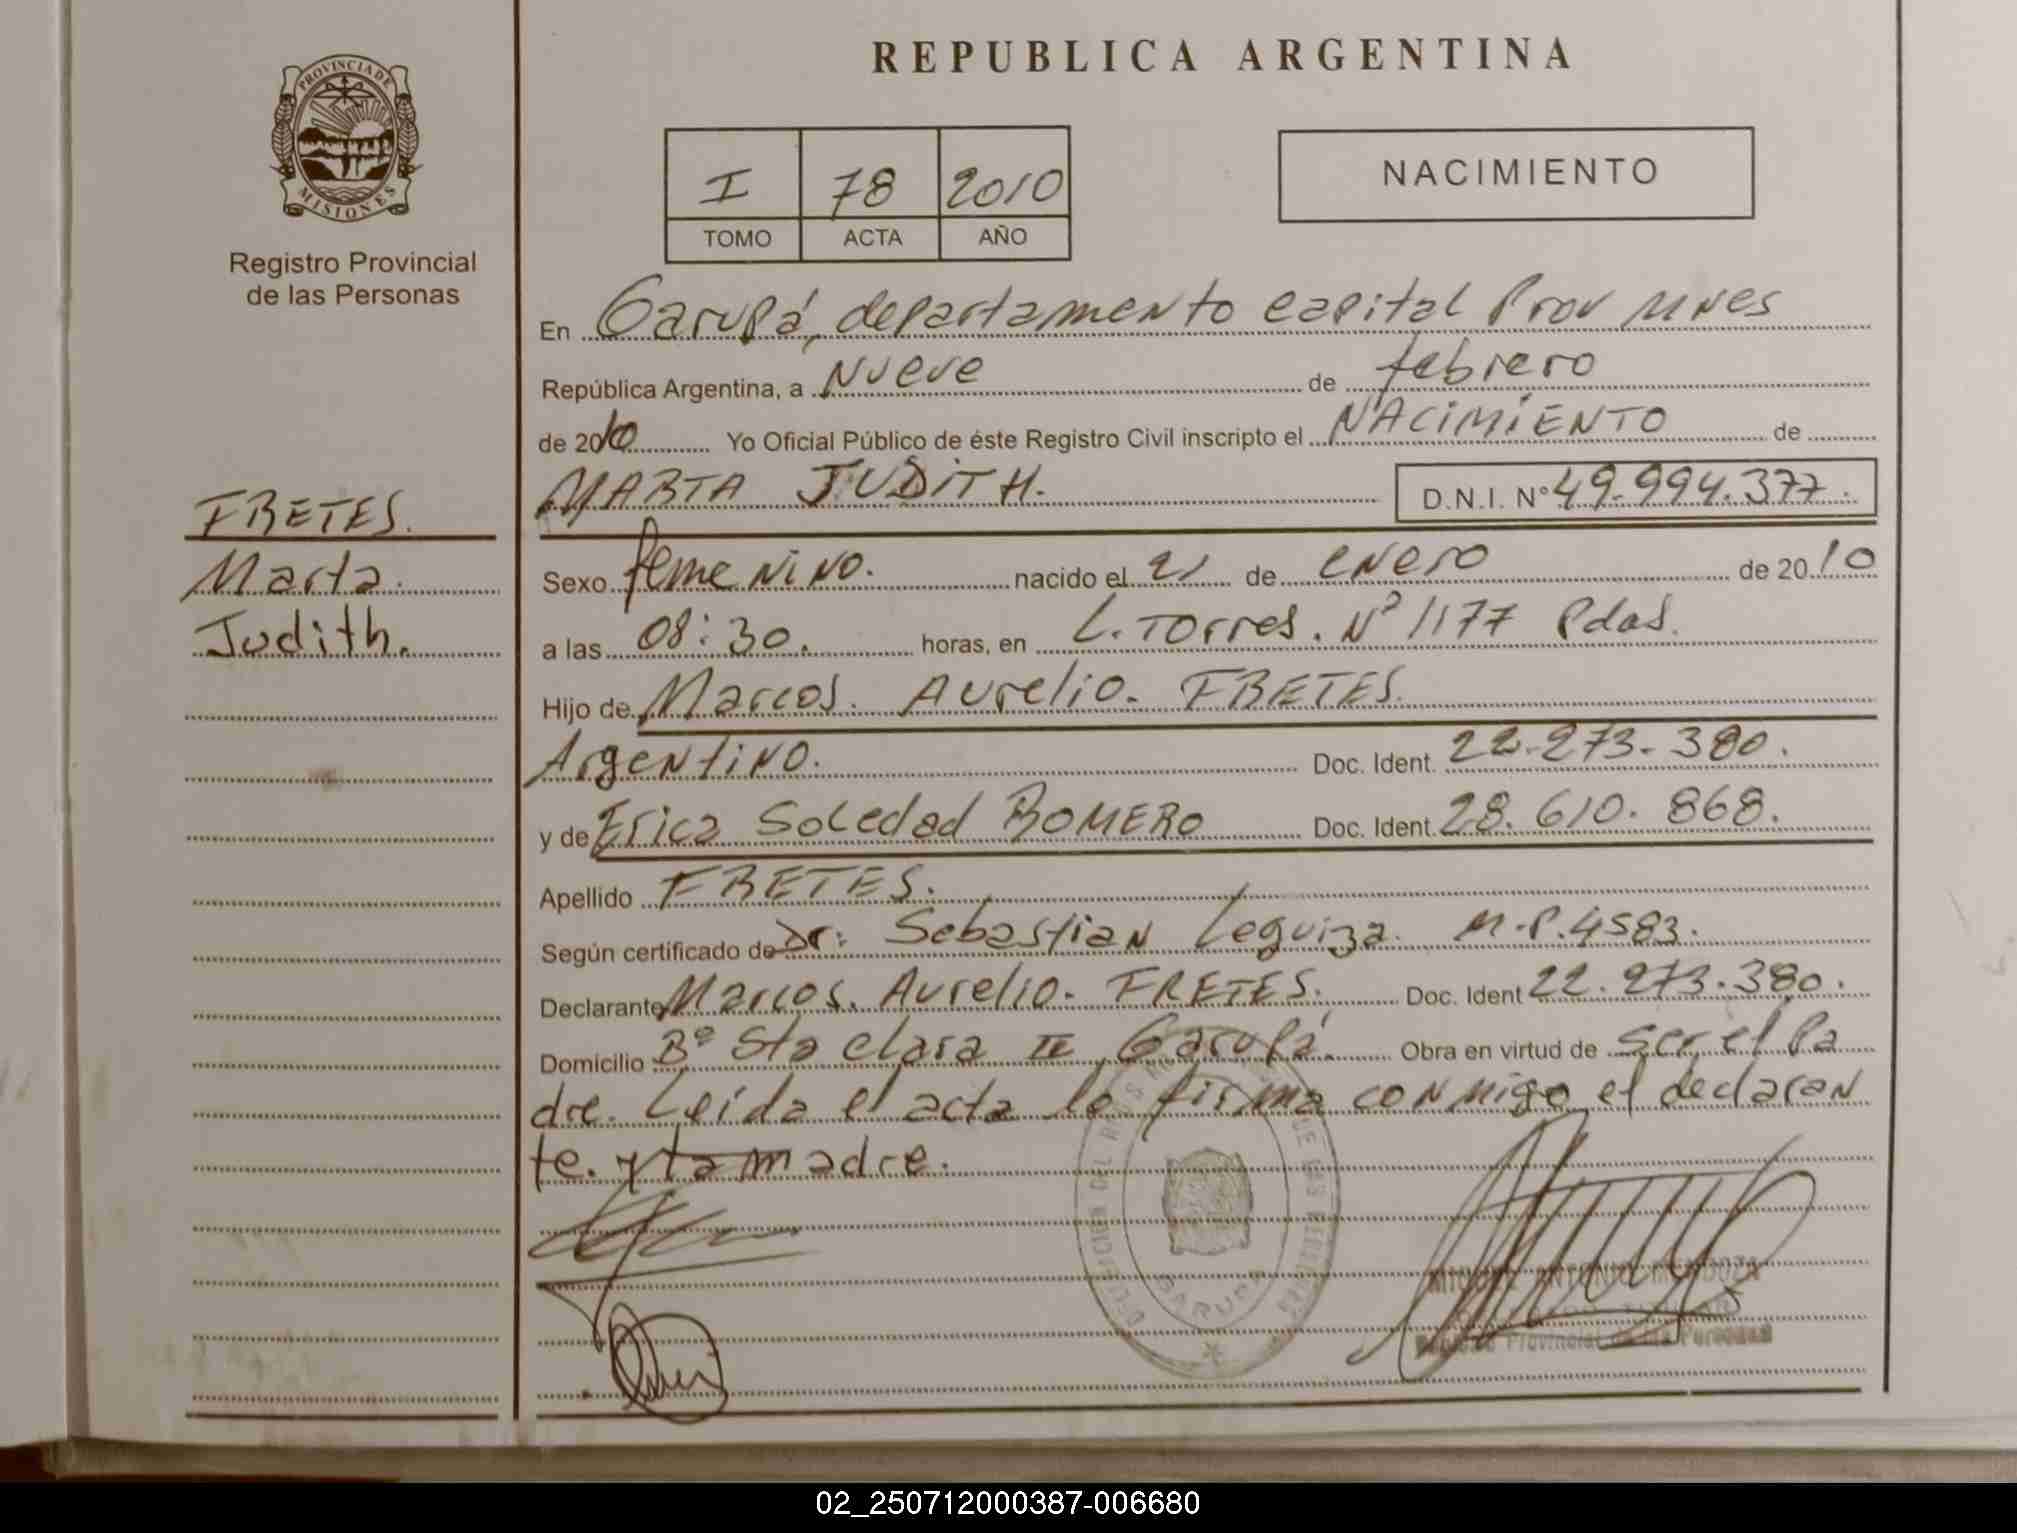 REPUBLICA ARGENTINA
PROVINCIA DE
MISIONES
Registro Provincial
de las Personas
I 78 2010
TOMO ACTA AÑO
NACIMIENTO
En Garupá, departamento capital Prov Mnes
República Argentina, a Nueve de febrero
de 2010 Yo Oficial Público de éste Registro Civil inscripto el NACIMIENTO de
MARTA JUDITH. D.N.I. N° 49.994.377.
FRETES.
Marta.
Judith.
Sexo femenino. nacido el 21 de enero de 2010
a las 08:30. horas, en L. Torres. N° 1177 Pdas.
Hijo de Marcos. Aurelio. FRETES.
Argentino. Doc. Ident. 22.273.380.
y de Erica Soledad ROMERO Doc. Ident 28.610.868.
Apellido FRETES.
Según certificado de Dr: Sebastian Leguiza. M.P. 4583.
Declarante Marcos. Aurelio. FRETES. Doc. Ident 22.273.380.
Domicilio B° Sta clara II Garupá. Obra en virtud de ser el Pa
dre. Leída el acta la firma conmigo el declaran
te. y la madre.
GARUPA
MIGUEL ANTONIO MENDOZA
Registro Provincial de las Personas
02_250712000387-006680